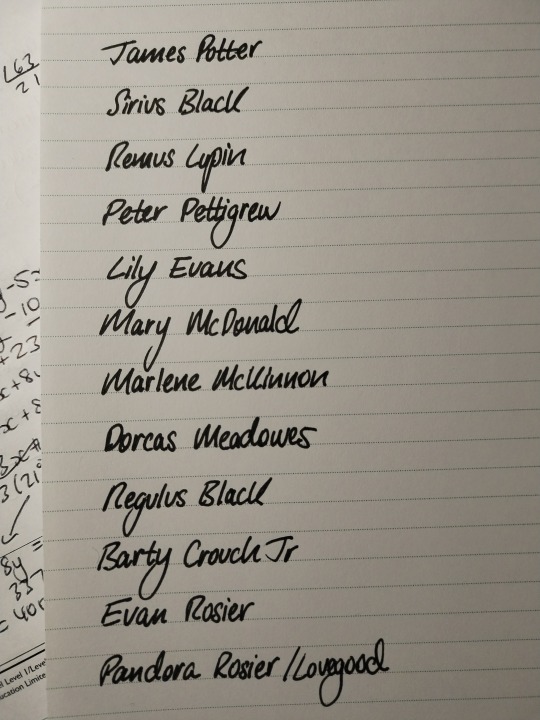 James Potter
Sirius Black
Remus Lupin
Peter Pettigrew
Lily Evans
Mary McDonald
Marlene McKinnon
Dorcas Meadowes
Regulus Black
Barty Crouch Jr
Evan Rosier
Pandora Rosier/Lovegood
63
21
-5
-10
+23
x+8
3(21
8y =
337
= 40
l Level 1/Leve
ucation Limite